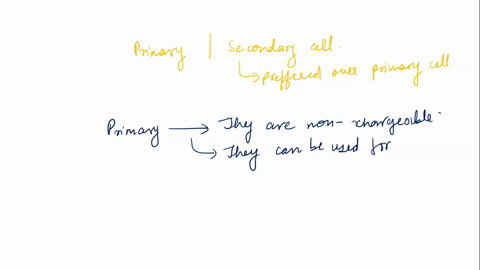 Primary | Secondary cell.
preffered over primary cell.
Primary → They are non-chargeable.
They can be used for